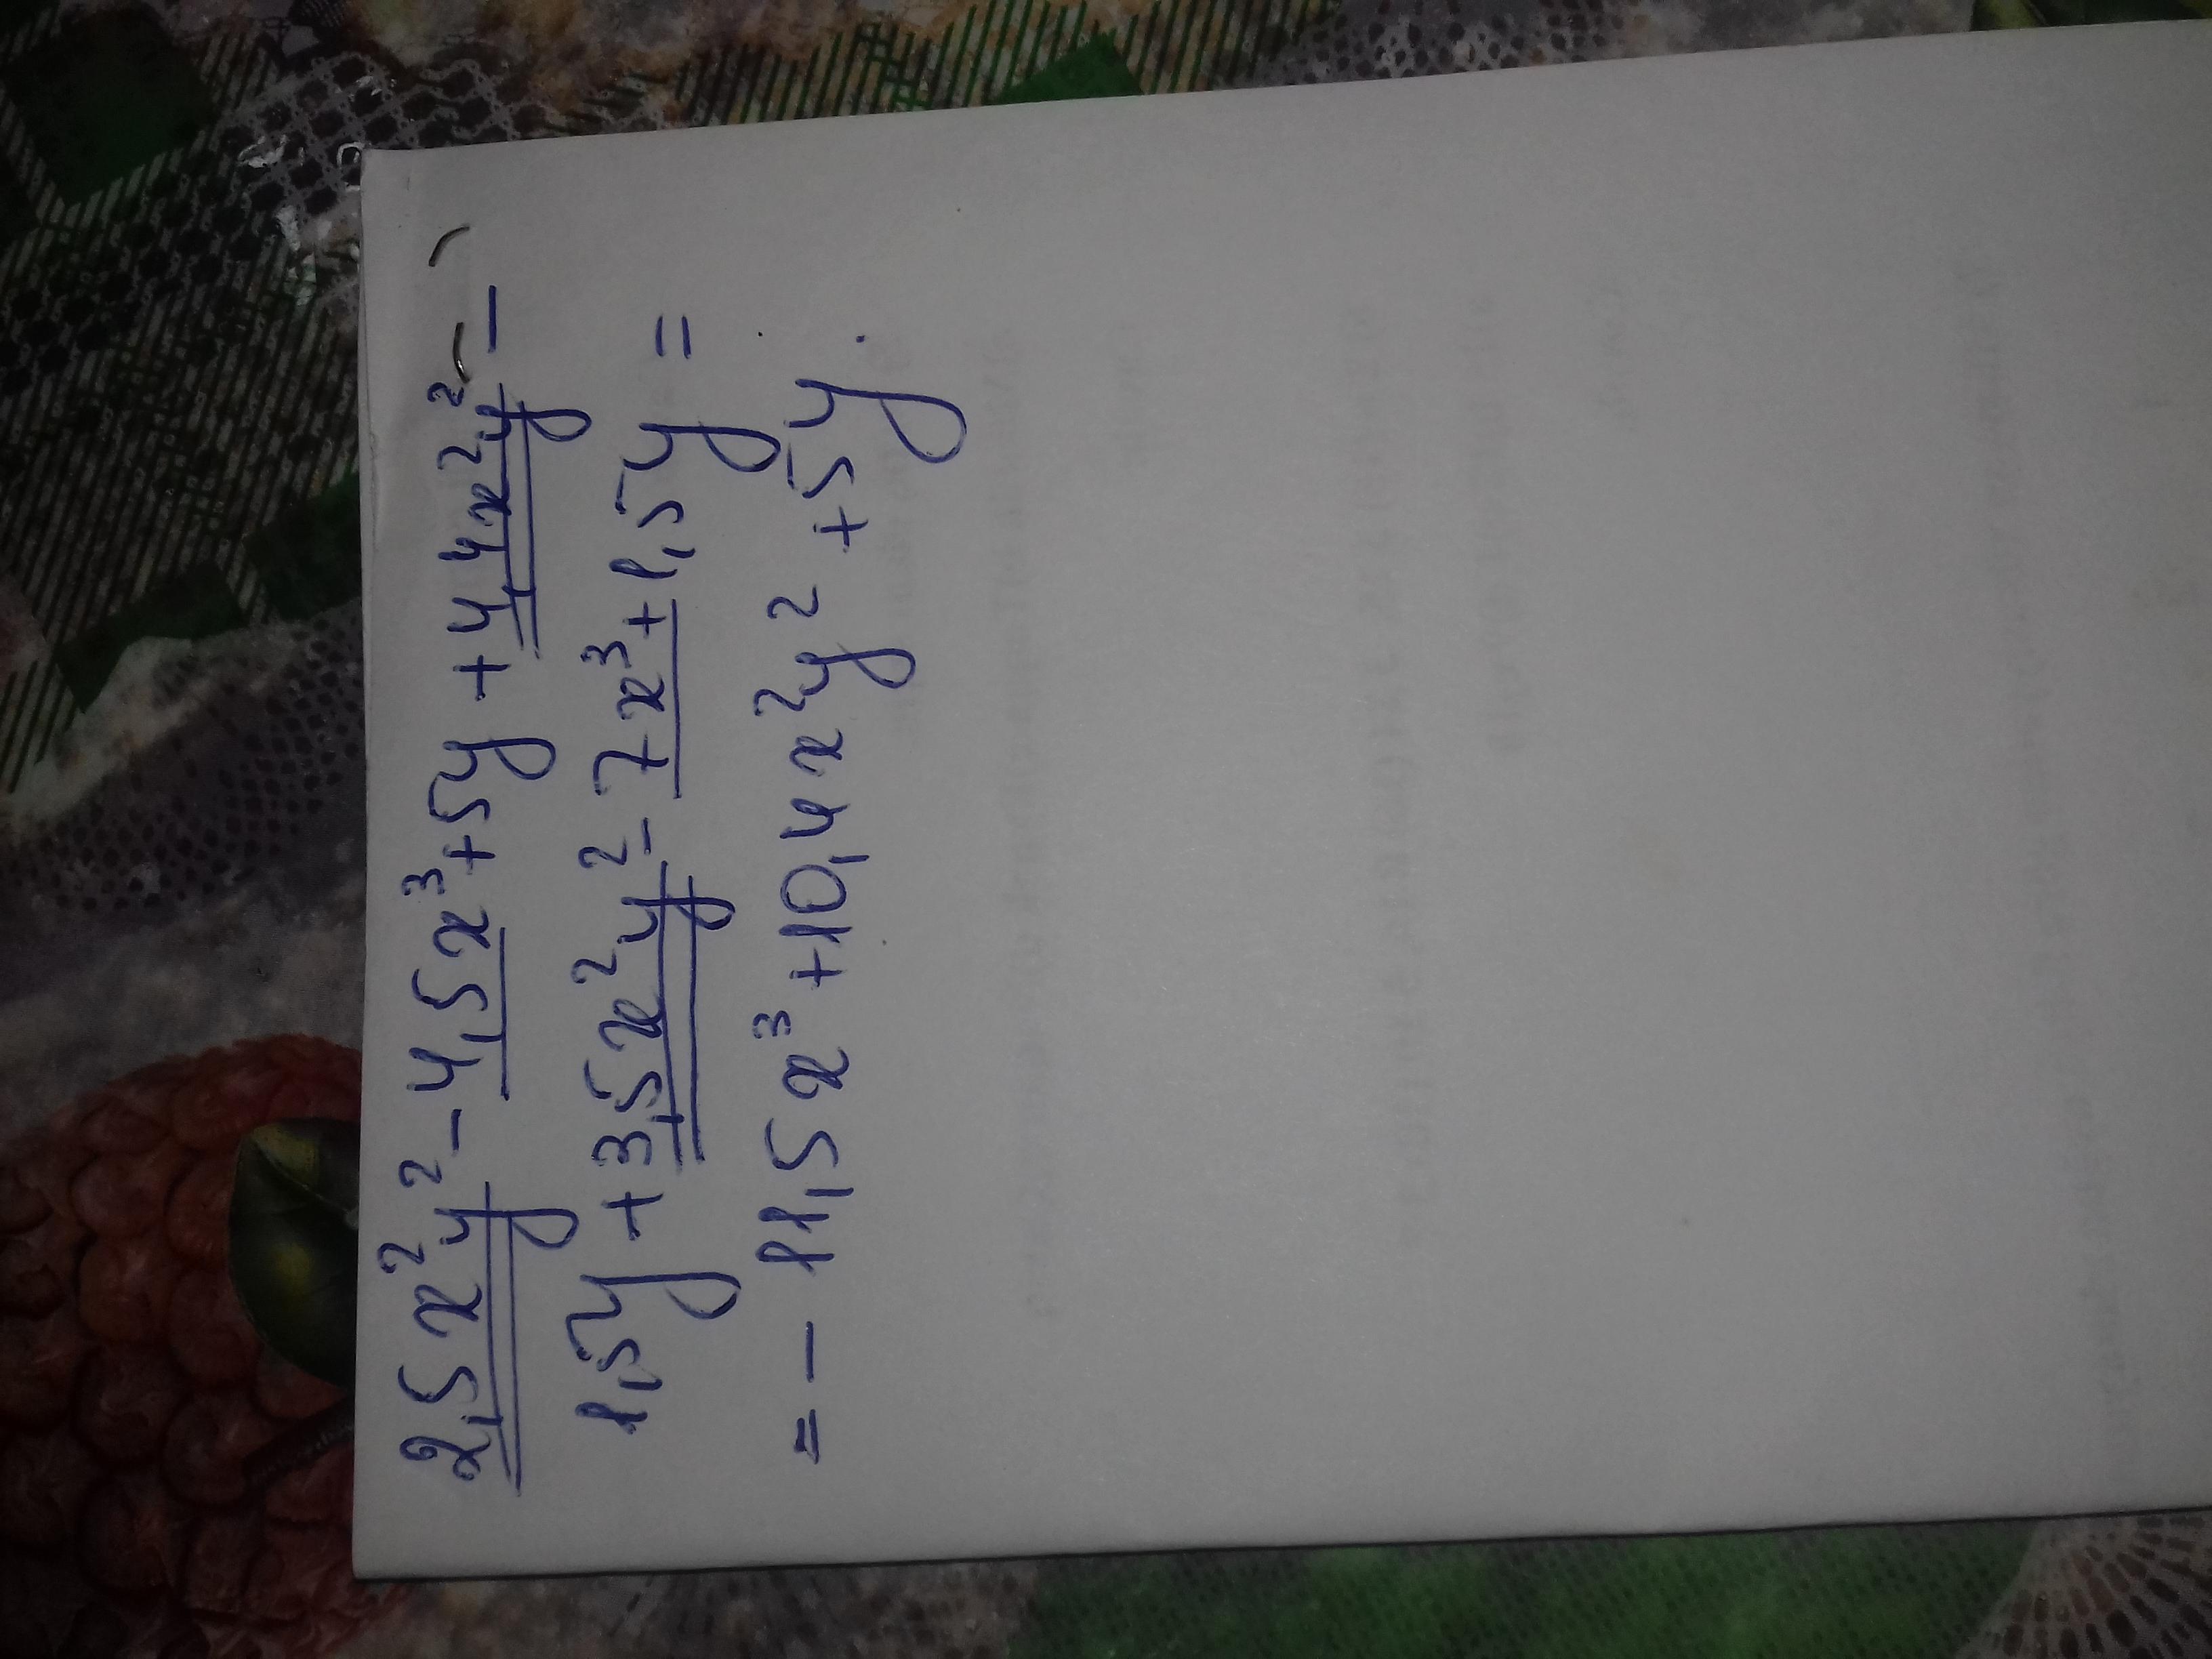 2,5x²y² - 4,5x³ + 5y + 4,4x²y² -
1,5y + 3,5x²y² - 7x³ + 1,5y =
= - 11,5x³ + 10,4x²y² + 5y.